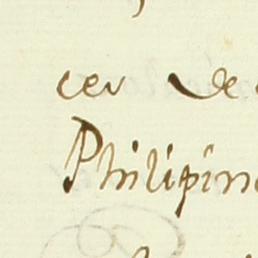 cer de
Philipin